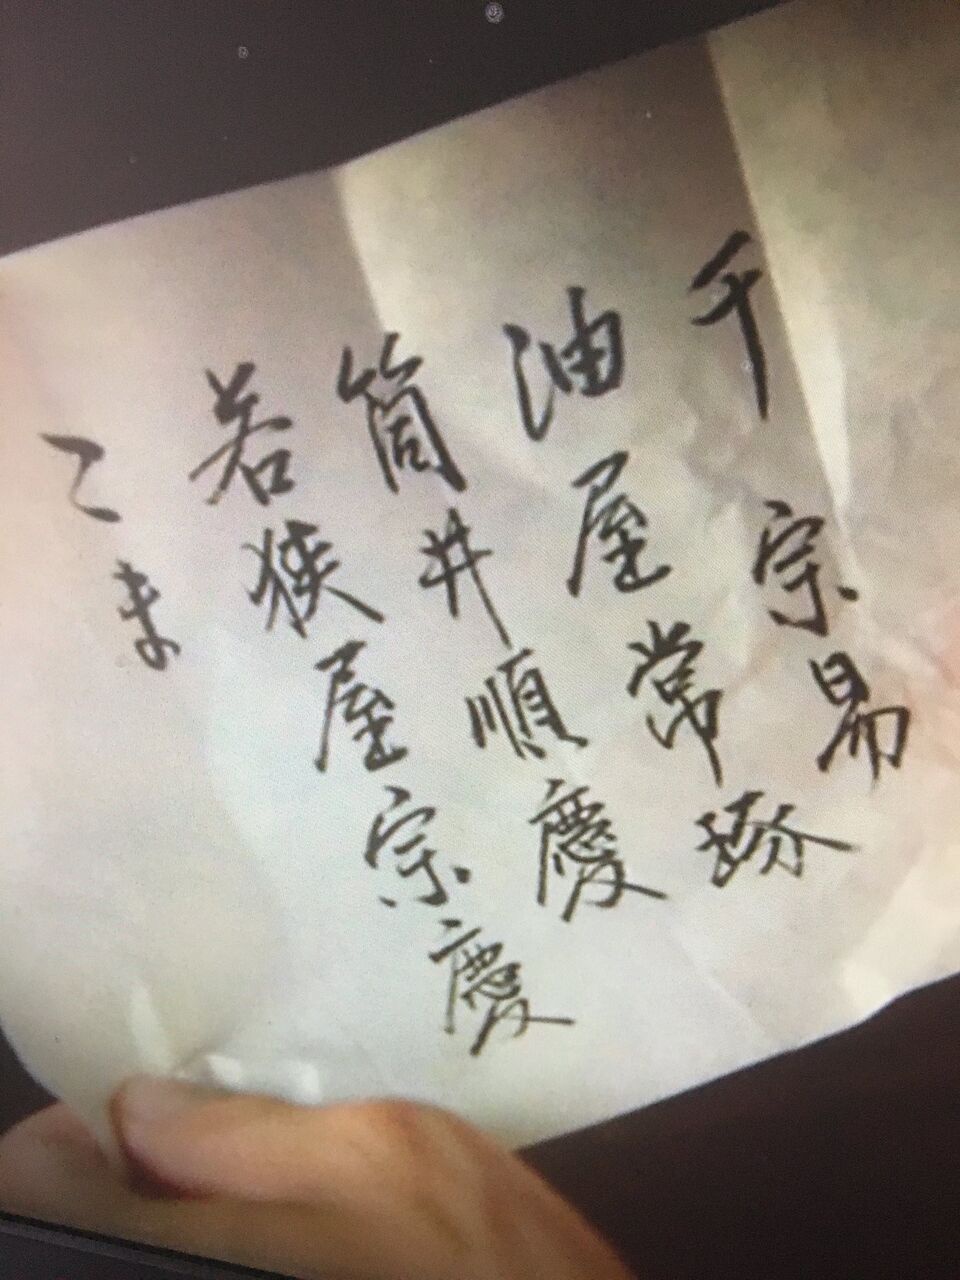 千宗易
油屋常琢
筒井順慶
若狭屋宗慶
こま